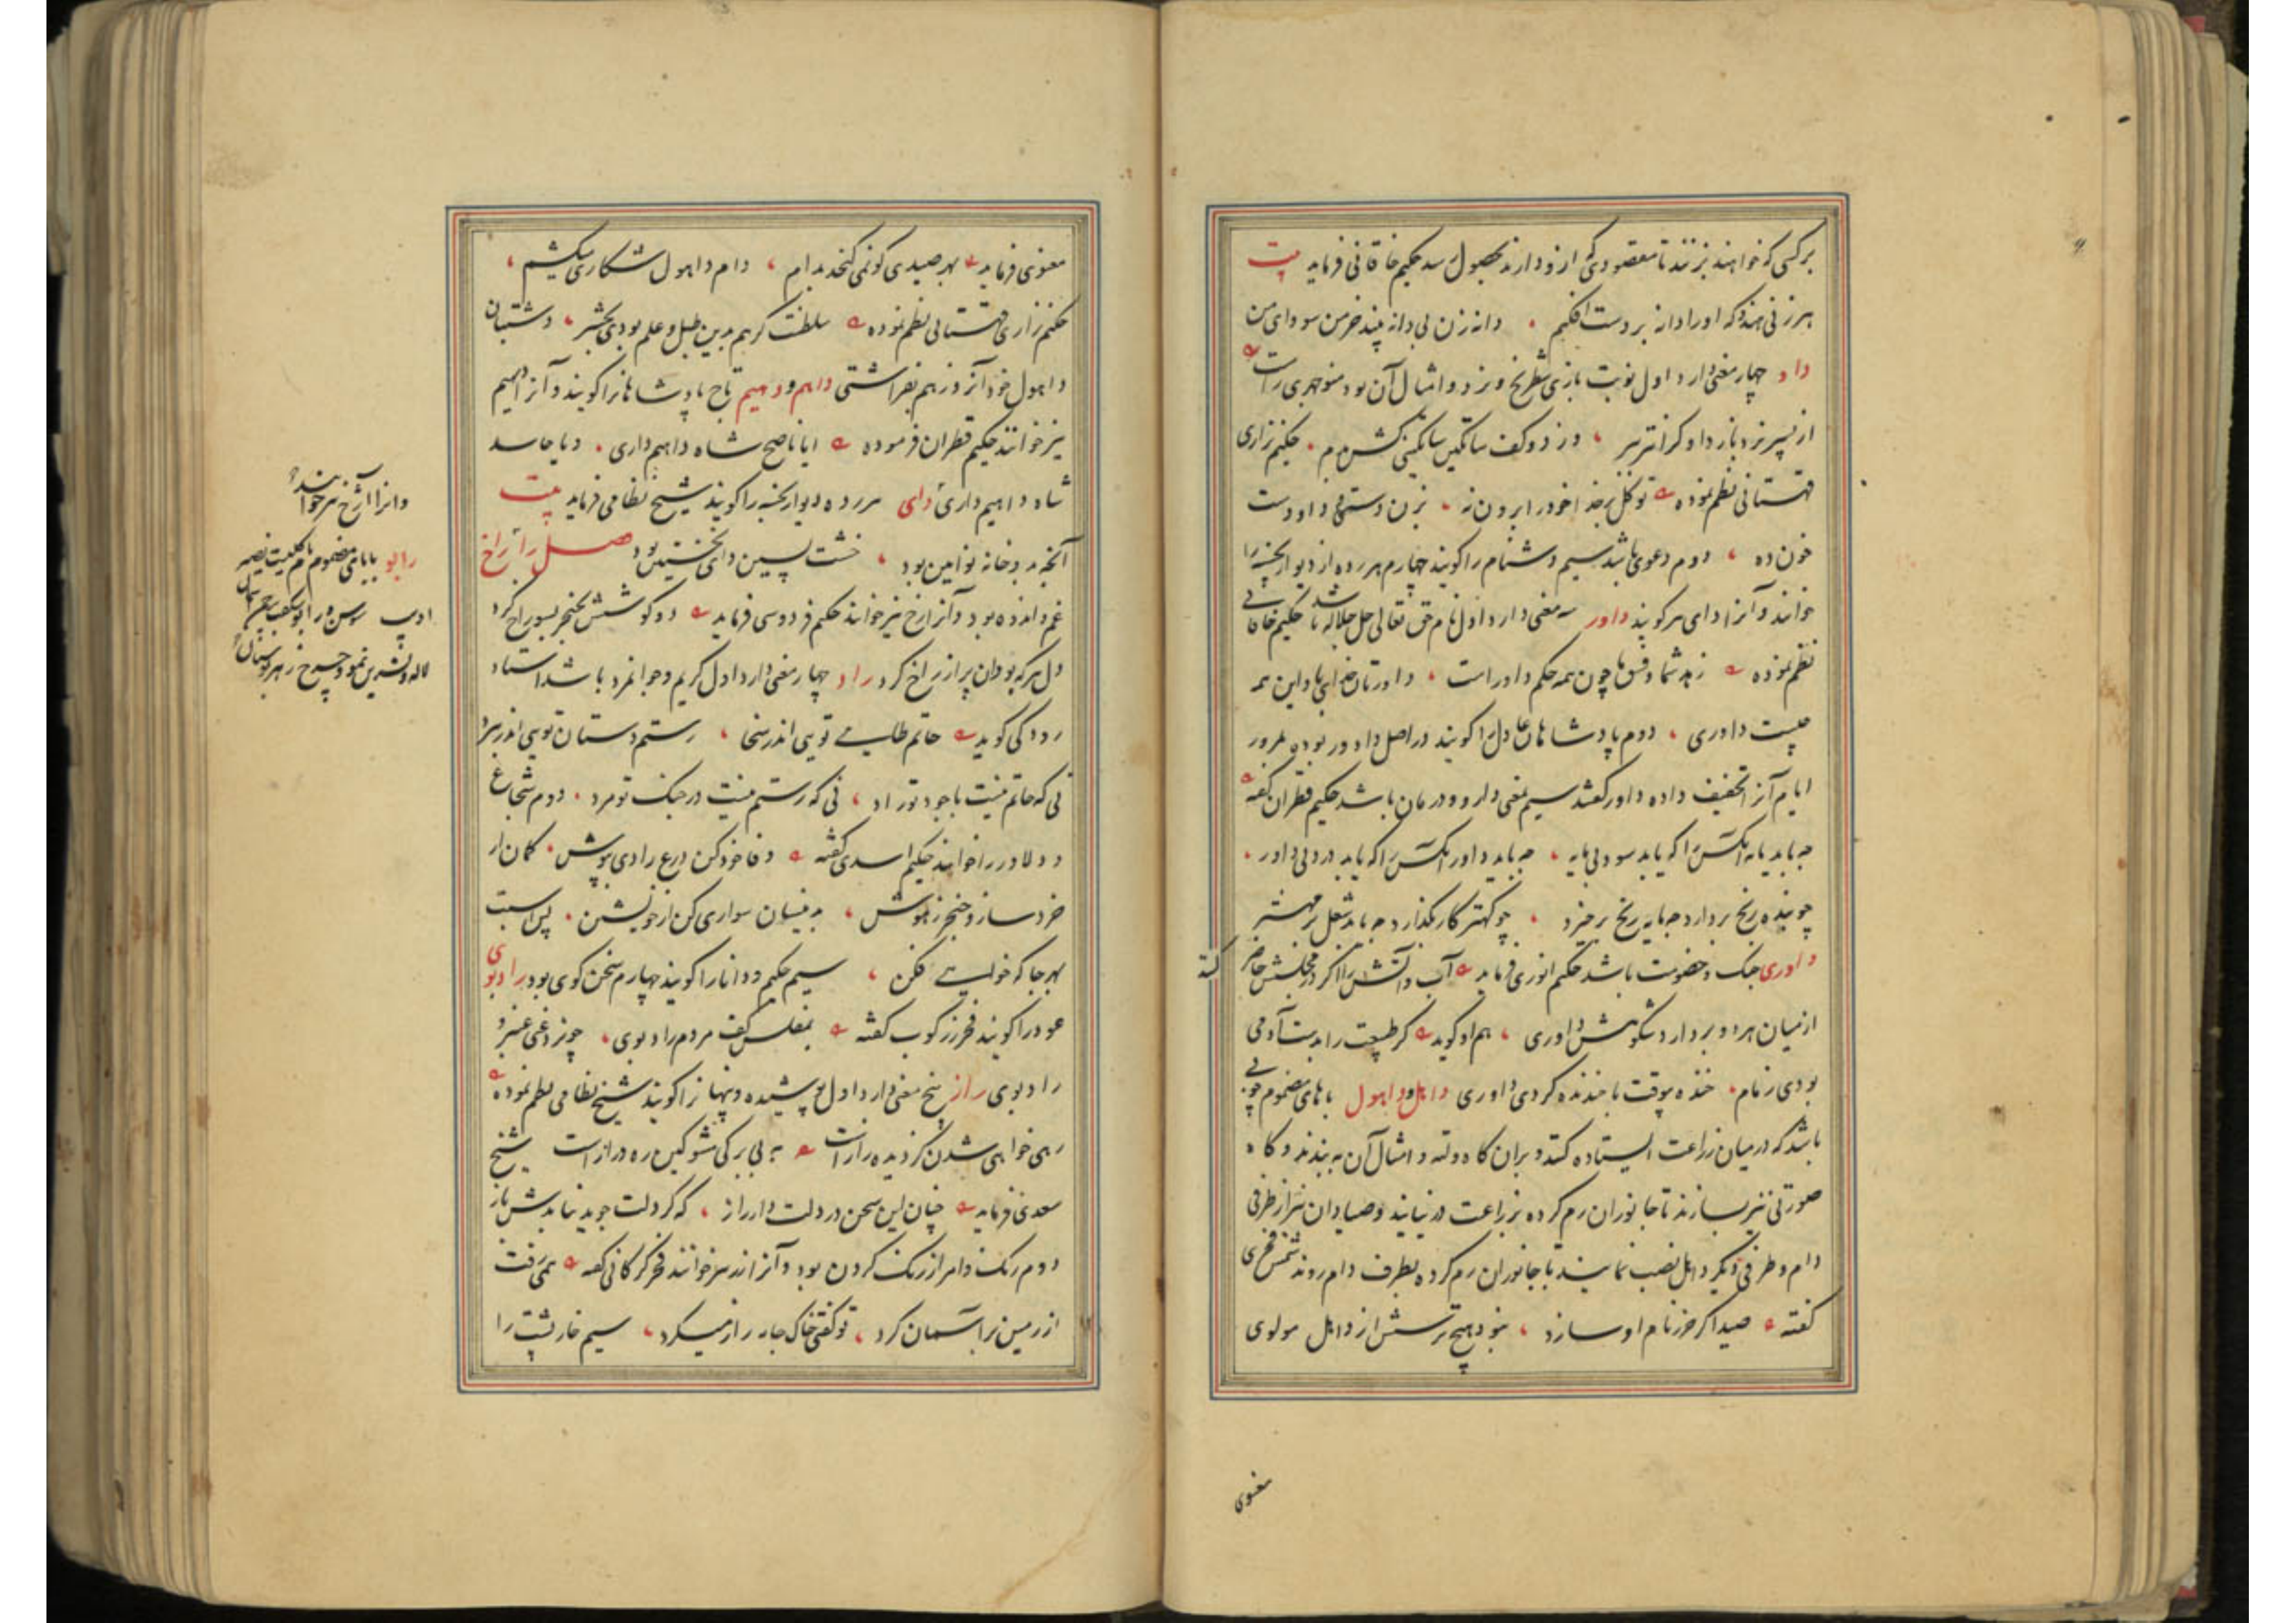 برکسی که خواهند بزنند تا مقصودی که ازو دارند بحصول رسد حکیم خاقانی فرماید بیت
هر زنی هندو که او را دانه بر دست افکنم دانه زن بی دانه بیند خرمن سودای من
داو چهار معنی دارد اول نوبت بازی شطرنج و نرد و امثال آن بود منوچهری راست
از پسر نرد باز داو گران تر ببر وز دو کف ساتگین ساتگنی کش بدم حکیم نزاری
قهستانی نظم نموده توکل بر خدا خود را برون نه بزن دستی و داو دست
خون ده دوم دعوی باشد سیم دشنام را گویند چهارم هر رده از دیوار چینه را
خوانند و آنرا دای هم گویند داور سه معنی دارد اول نام حق تعالی جل جلاله باشد حکیم خاقانی
نظم نموده زهد شما و فسق ما چون همه حکم داور است داورتان خدای باد این همه
چیست داوری دوم پادشاهان عادل را گویند در اصل دادور بوده بمرور
ایام آنرا تخفیف داده داور گفتند سیم بمعنی دارو و درمان باشد حکیم قطران گفته
چه باید مایه آنکس را که یابد سود بی مایه چه باید داور آنکس را که یابد درد بی داور
چو بنده رنج بردارد چه باید رنج بر خیزد چو کهتر کار بگذارد چه باید شغل بر مهتر
داوری جنگ و خصومت باشد حکیم انوری فرماید آب و آتش را اگر در مجلسش حاضر کنند
از میان هر دو بردارد شکوهش داوری هم او گوید گر طبیعت را بدست آدمی
بودی زمام خنده بوقت با خنده کردی داوری داهل و داهول با های مضموم چوبی
باشد که در میان زراعت ایستاده کنند و بران کاه و وته و امثال آن به بندند و گاه
صورتی نیز بسازند تا جانوران رم کرده بزراعت در نیایند و صیادان نیز از طرفی
دام و طرفی دیگر داهل نصب نمایند تا جانوران رم کرده بطرف دام روند شمس فخری
گفته صید اگر حرز نام او سازد نبود هیچ ترسش از داهل مولوی
معنوی
معنوی فرماید بهر صیدی کو نمی گنجد بدام دام داهول شکاری میکشم
حکیم نزاری قهستانی نظم نموده سلطنت گر هم بدین طبل و علم بودی بحشر دشتبان
داهول خود آنروز هم بفراشتی داهم و دهیم تاج پادشاهانرا گویند و آنرا دهیم
نیز خوانند حکیم قطران فرموده ایا ناصح شاه داهیم داری و یا حاسد
شاه داهیم داری دای هر رده دیوار چینه را گویند شیخ نظامی فرماید بیت
آنچه بدو خانه نو آیین بود خشت پسین دای نخستین بود فصل را راخ
غم و اندوه بود و آنرا رخ نیز خوانند حکیم فردوسی فرماید دو گوشش بخنجر بسوراخ کرد
دل هر که بود آن پر از راخ کرد راد چهار معنی دارد اول کریم و جوانمرد باشد استاد
رودکی گوید حاتم طایی تویی اندر سخا رستم دستان تویی اندر نبرد
نی که حاتم نیست با جود تو راد نی که رستم نیست در جنگ تو مرد دوم شجاع
و دلاور را خوانند حکیم اسدی گفته وفا خود کن درع رادی بپوش کمان از
خرد ساز و خنجر ز هوش به نیسان سواری کن از خویشتن پس اسبت
بهر جا که خواهی فکن سیم حکیم و دانا را گویند چهارم سخن گوی بود رادبوی
عود را گویند فخر زرکوب گفته بمفلس کف مردم رادبوی چو نزد غنی عنبر و
رادبوی راز پنج معنی دارد اول پوشیده و پنهانرا گویند شیخ نظامی نظم نموده
رهی خواهی شدن کز دیده راز است به بی برگی مشو کین ره دراز است شیخ
سعدی فرماید چنان این سخن در دلت دار راز که گر دلت جوید نیابدش باز
دوم رنگ و امر از رنگ کردن بود و آنرا رز نیز خوانند فخر گرگانی گفته همی رفت
از زمین بر آسمان گرد تو گفتی خاک جامه راز میکرد سیم خارپشت را
و آنرا رخ نیز خوانند
رابو بابای مضموم نام گلیست
ادیب
لاله و نسرین